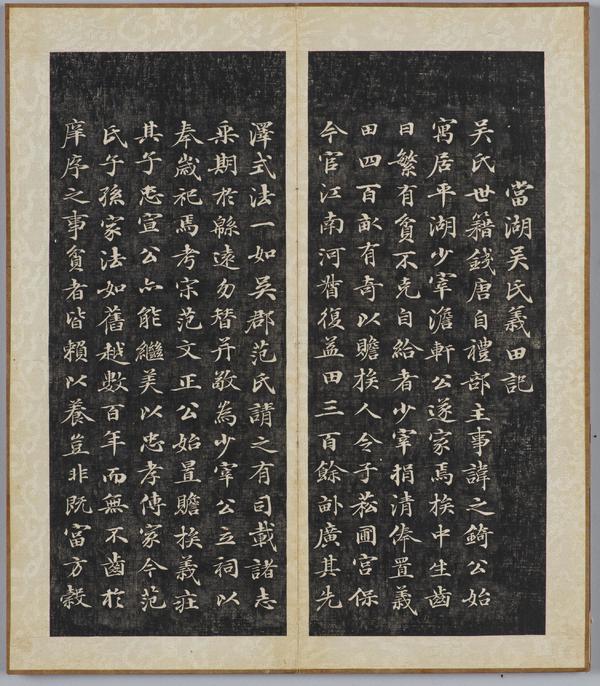 當湖吳氏義田記
吳氏世籍錢唐自禮部主事諱之錡公始
寓居平湖少宰澹軒公遂家焉族中生齒
日繁有貧不克自給者少宰捐清俸置義
田四百畝有奇以贍族人令子菘圃宮保
今官江南河督復益田三百餘畝廣其先
澤式法一如吳郡范氏請之有司載諸志
乘期於緜遠勿替并敬為少宰公立祠以
奉歲祀焉考宗范文正公始置贍族義莊
其子忠宣公亦能繼美以忠孝傳家今范
氏子孫家法如舊越數百年而無不齒於
庠序之事貧者皆賴以養豈非既富方穀